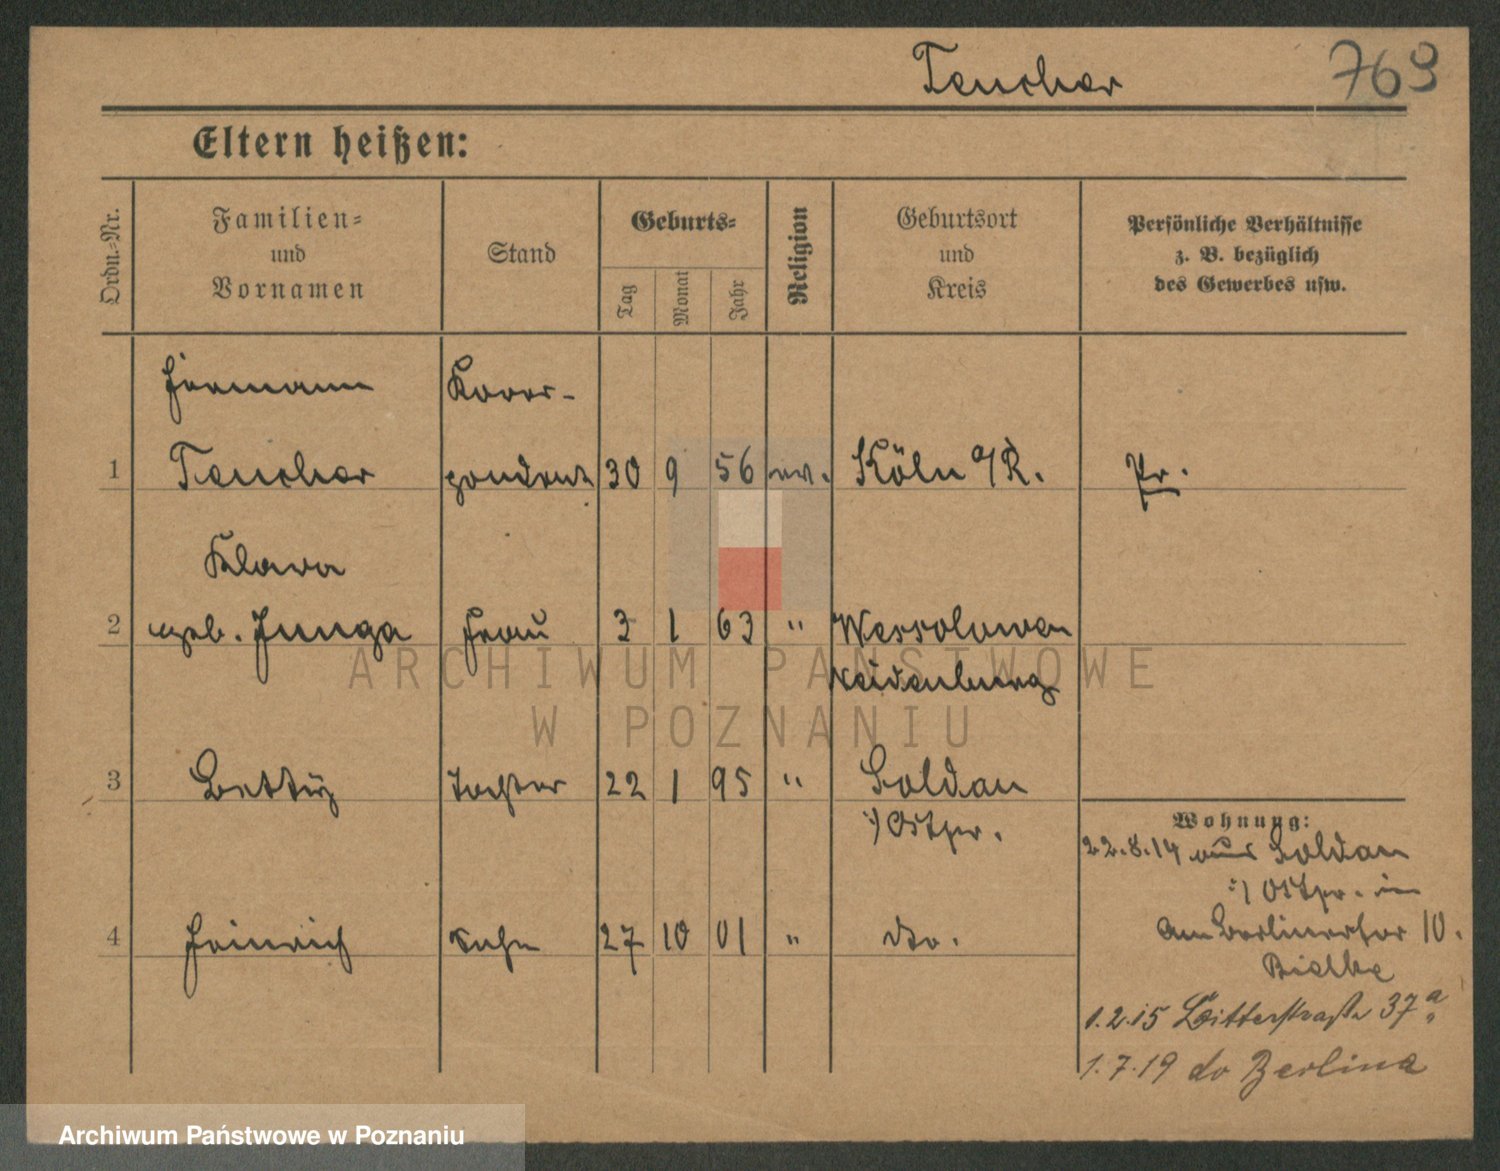 Tencher 769
Eltern heißen:
Ordn.-Nr.
Familien-
und
Vornamen
Stand
Geburts-
Tag
Monat
Jahr
Religion
Geburtsort
und
Kreis
Persönliche Verhältnisse
z. B. bezüglich
des Gewerbes usw.
Hermann Korres-
1 Tencher pondent 30 9 56 ev. Köln a/R. Pr.
Klara
2 geb. Junga Frau 3 1 63 " Wessolowen
Neidenburg
3 Betty Tochter 22 1 95 " Soldan
i/ Ostpr.
Wohnung:
22.8.14 aus Soldan
i/ Ostpr. in
4 Heinrich Sohn 27 10 01 " dto.
Am Berlinertor 10.
Bielke
1.2.15 Ritterstraße 37a
1.7.19 do Berlina
ARCHIWUM PAŃSTWOWE
W POZNANIU
Archiwum Państwowe w Poznaniu